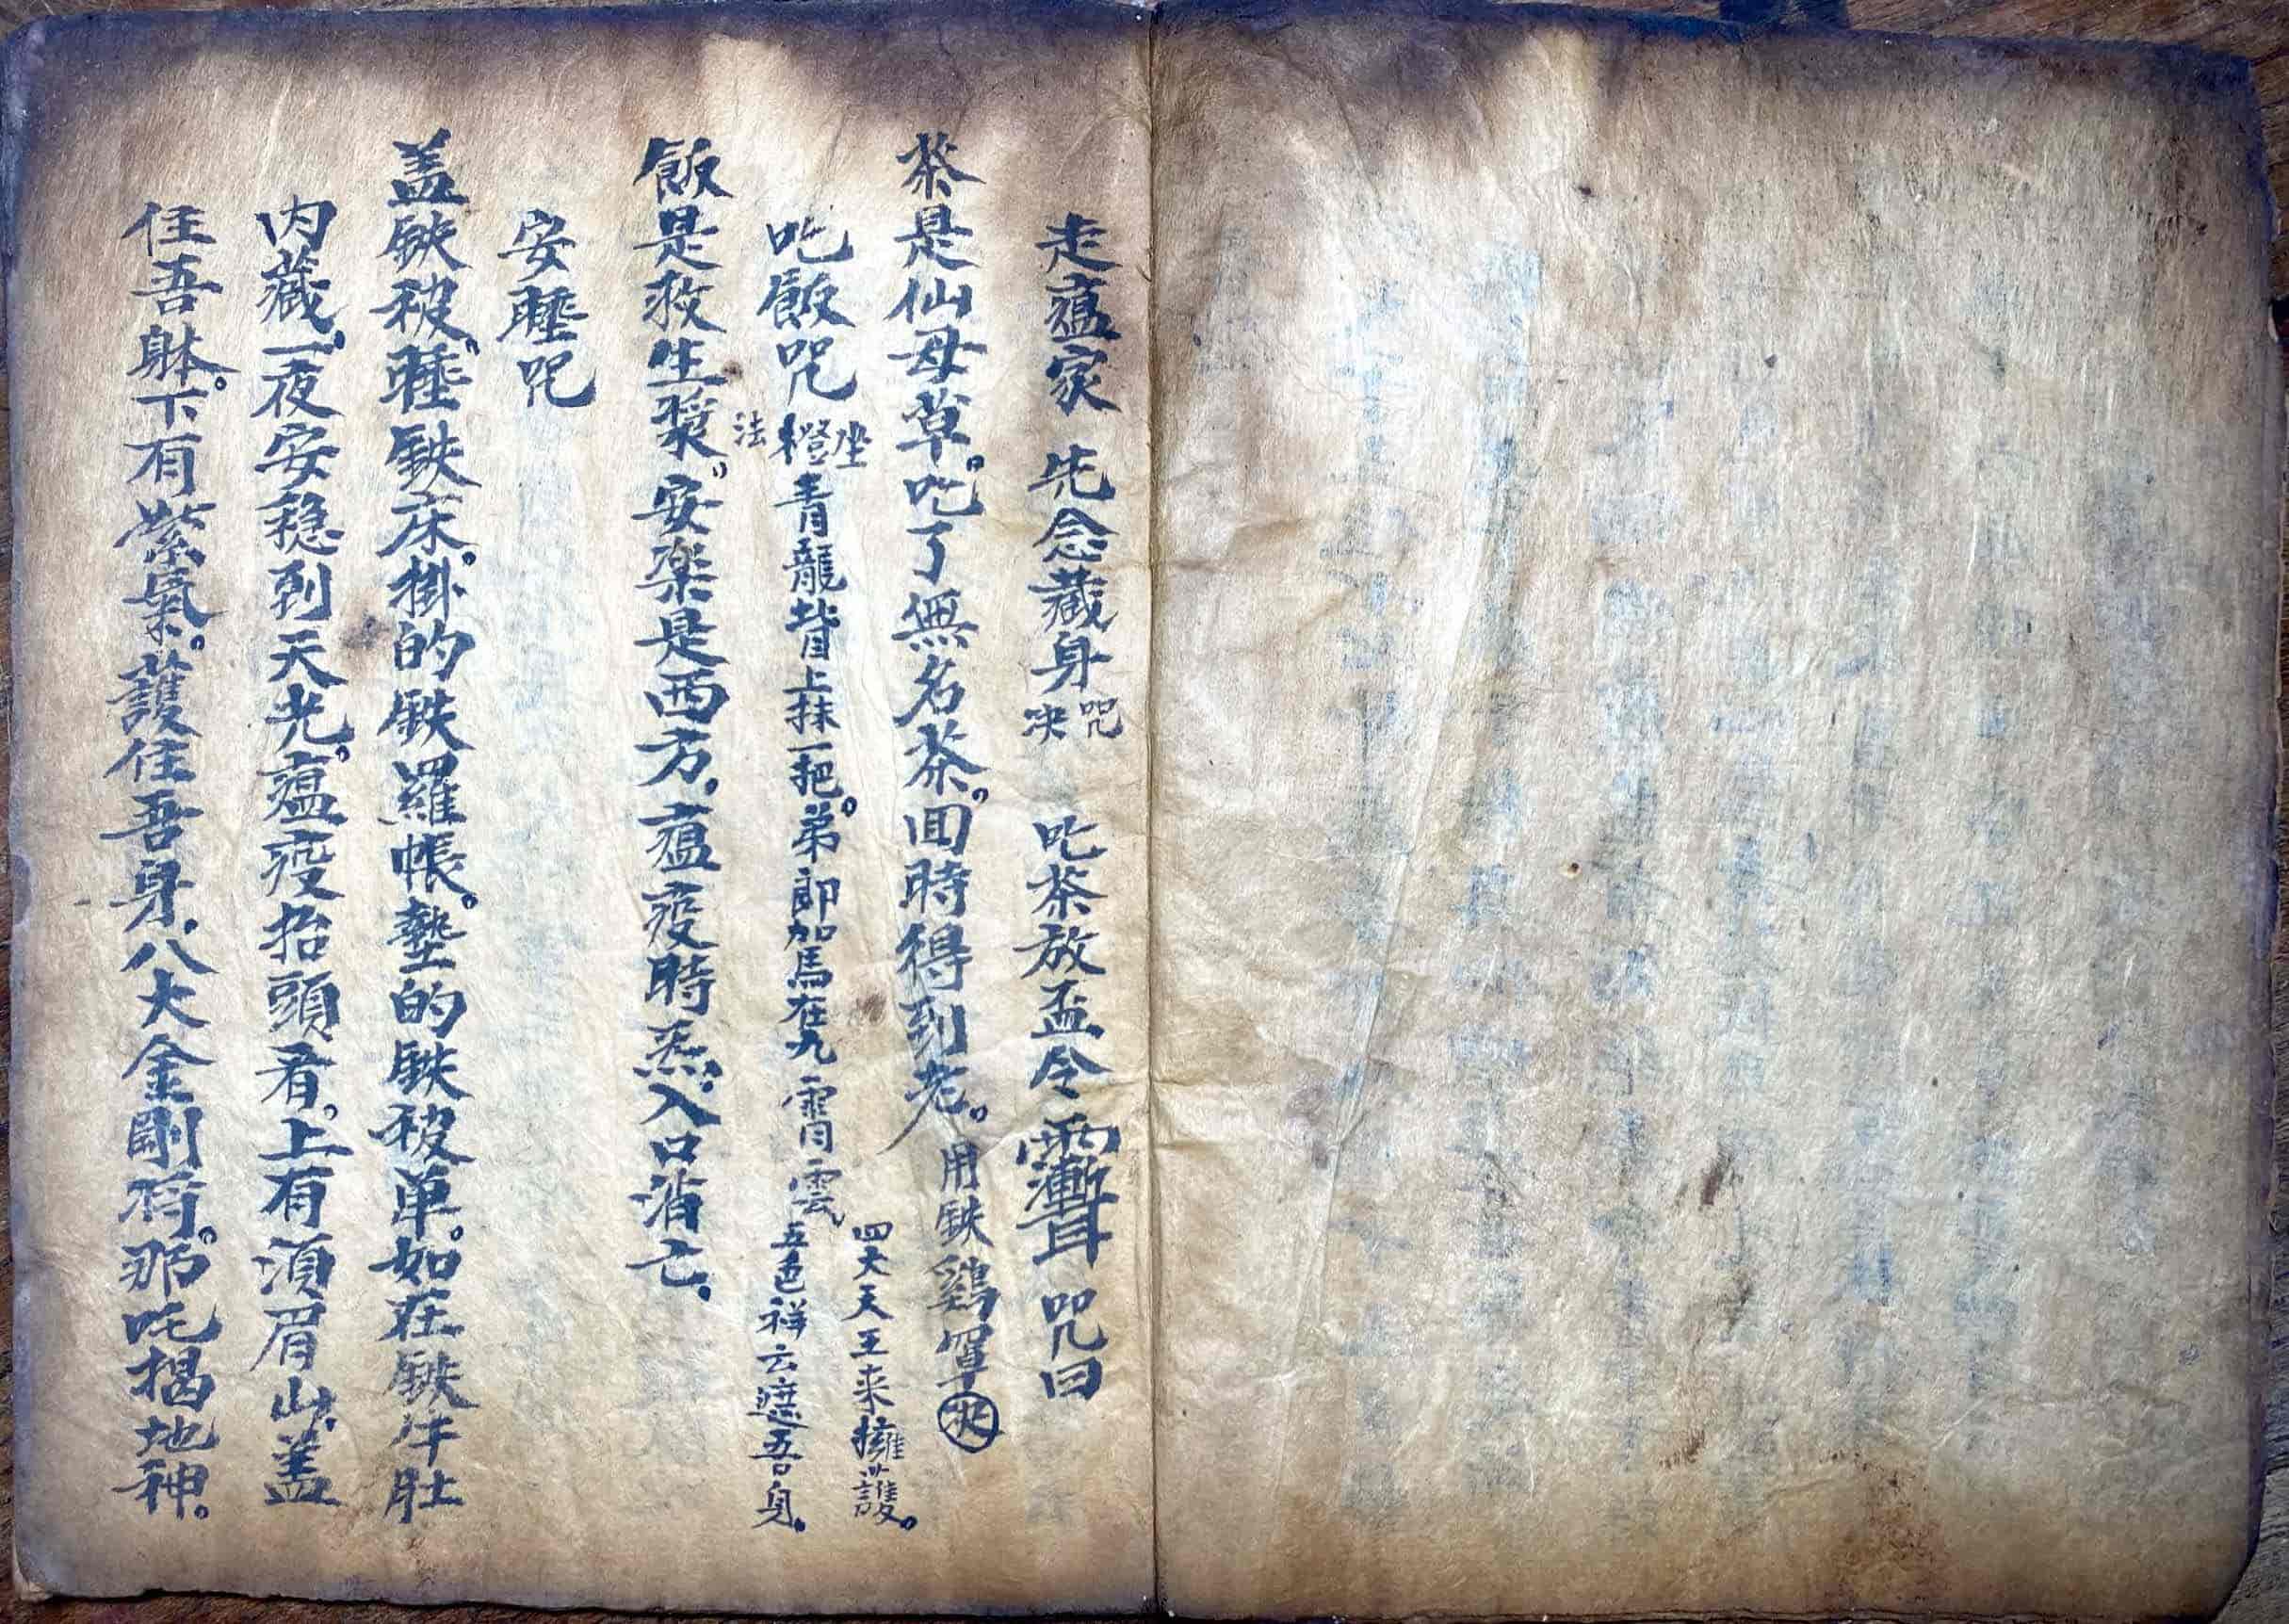 走瘟家 先念藏身咒决 吃茶放盃令 咒曰
茶是仙母草。吃了無名茶。回時得到老。用鉄鷄罩
吃飯咒 坐橙法 青龍背上抹一把。弟郎加馬在九霄雲 四大天王来擁護。五色祥云遮吾身。
飯是救生漿。安楽是西方。瘟疫時炁入口消亡。
安睡咒
盖鉄被。睡鉄床。掛的鉄羅帳。墊的鉄被单。如在鉄牛肚
内藏。一夜安穏到天光。瘟疫抬頭看。上有須眉山。盖
住吾躰。下有紫氣。護住吾身。八大金剛将。那吒揭地神。